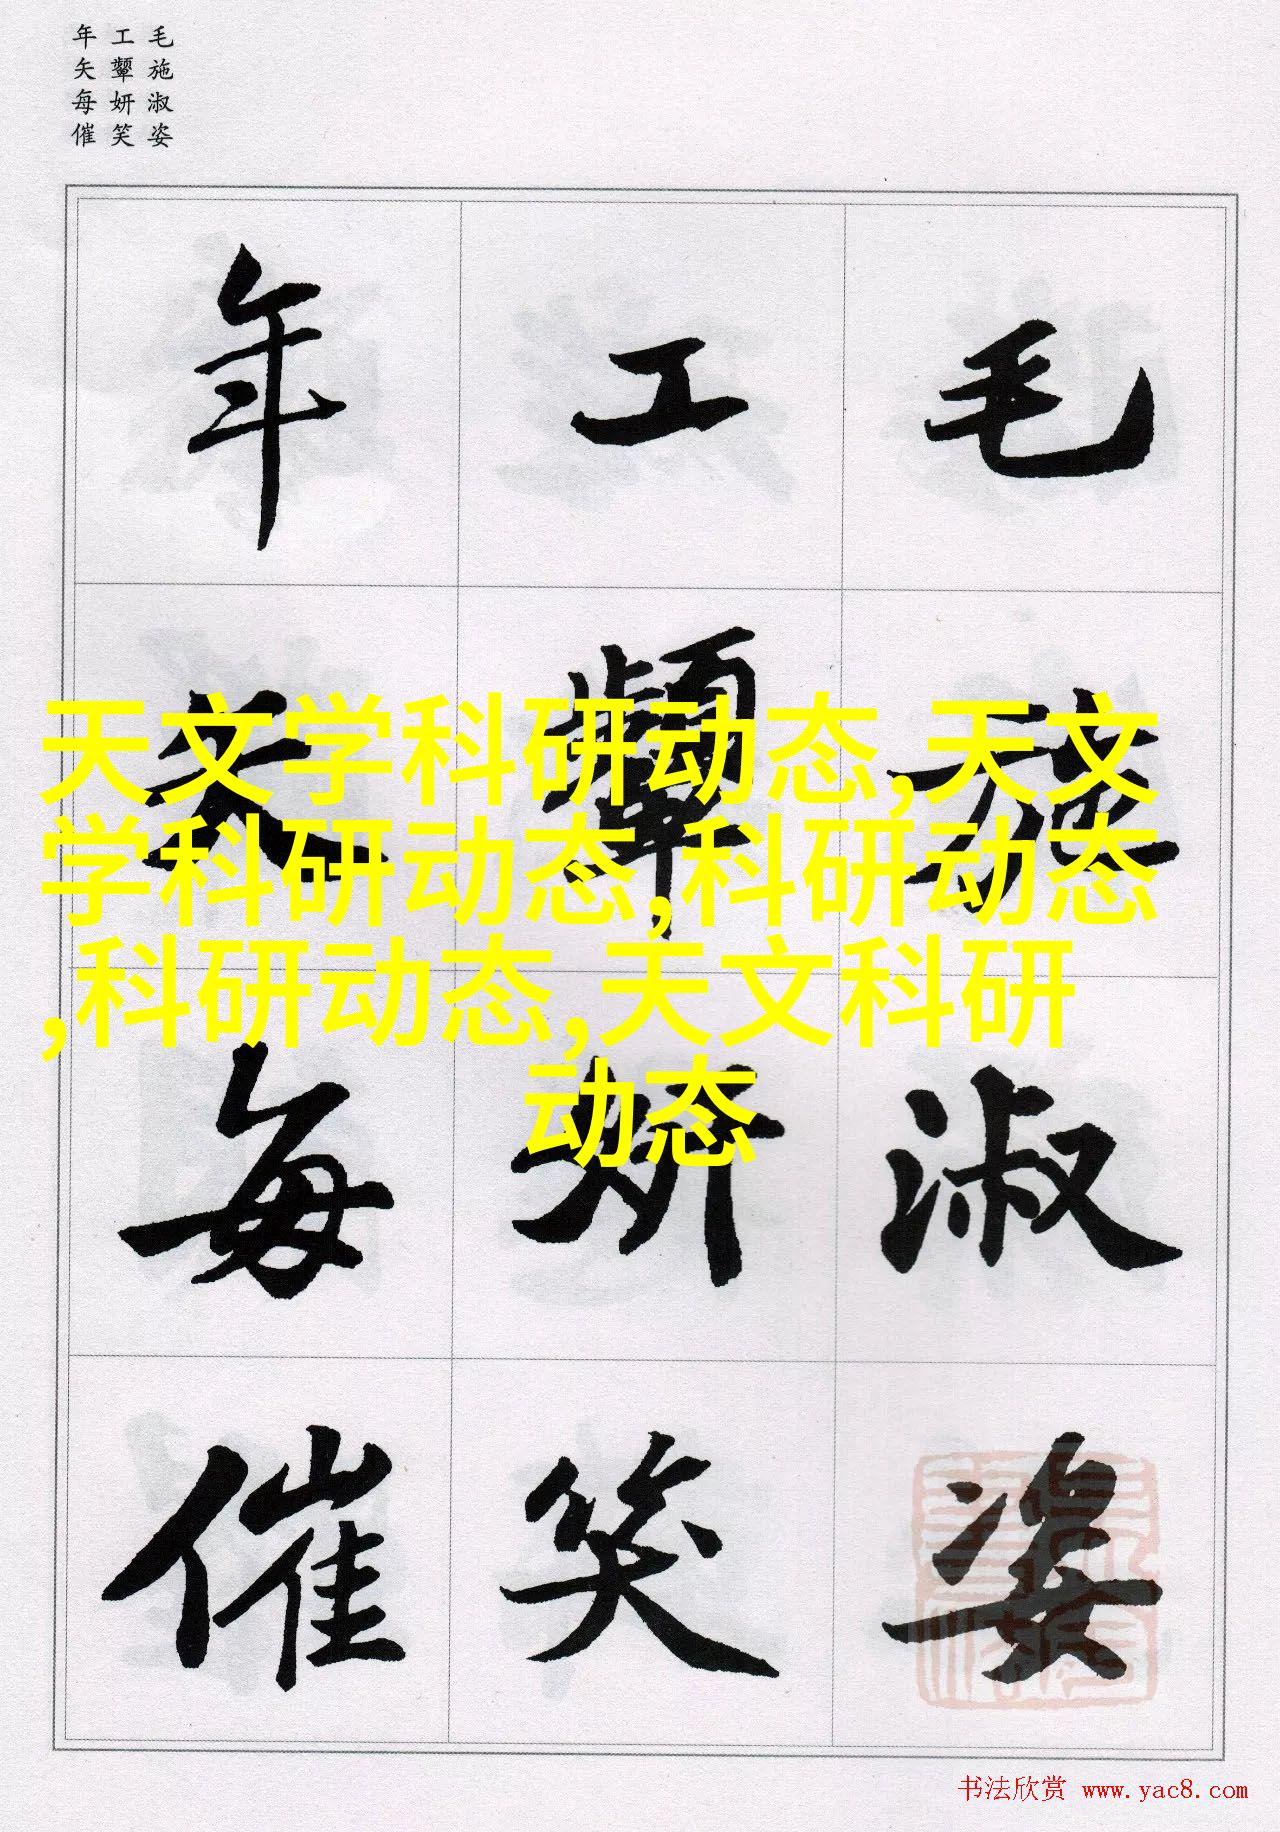 毛施淑姿
工颦妍笑
年矢每催
毛施淑姿
工颦妍笑
年矢每催
天文学科研动态,天文
学科研动态,科研动态
,科研动态,天文科研
动态
书法欣赏 www.yac8.com